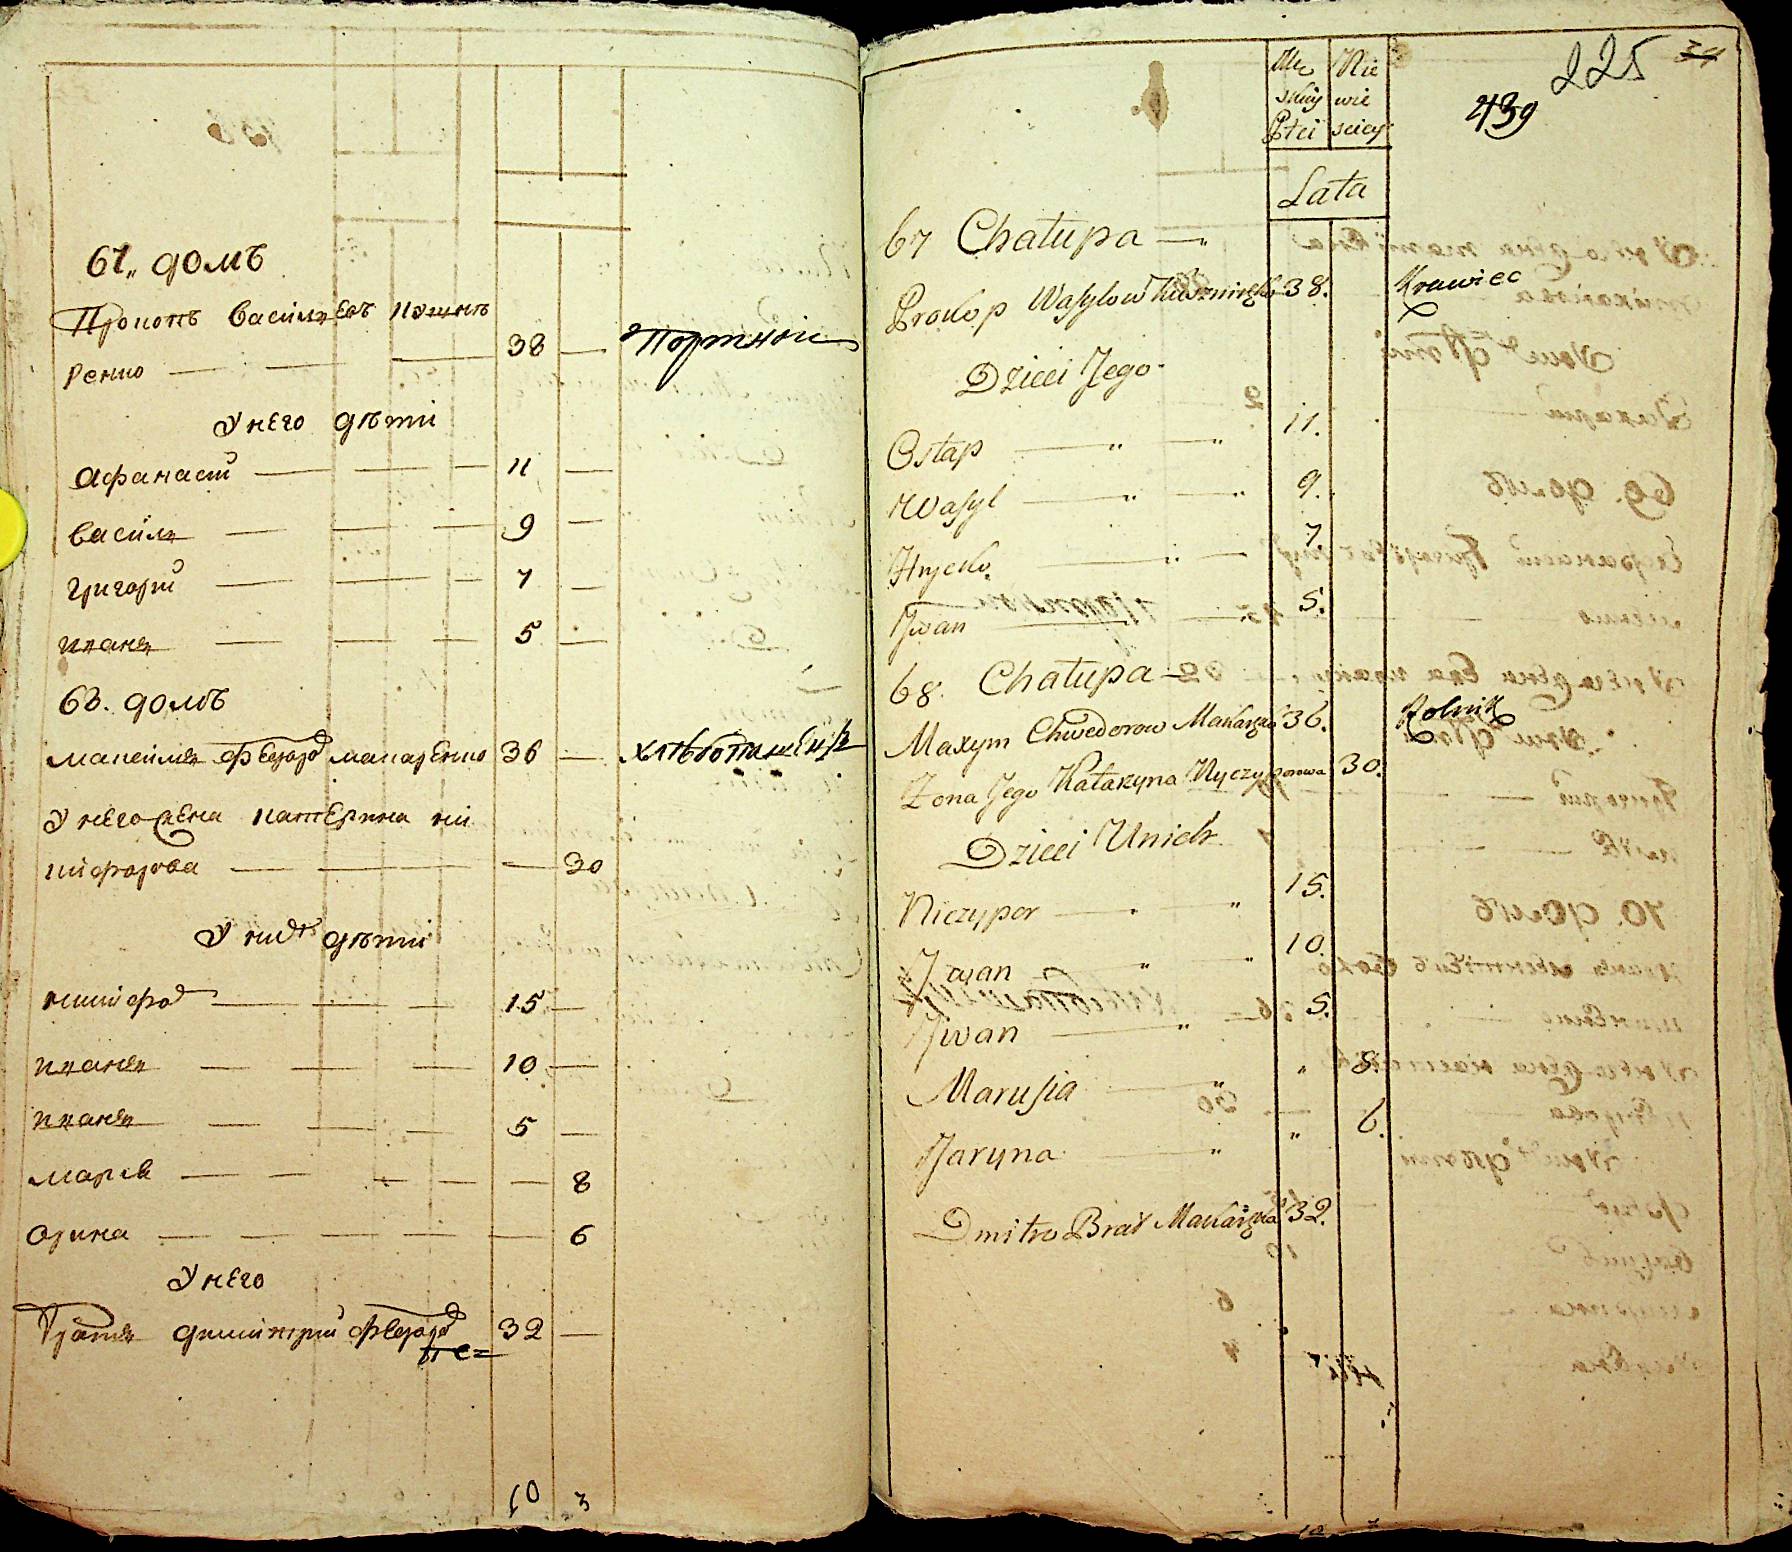 67,, домъ
Прокопъ Василъевъ Кушни
ренко — — — 38 — Портной
У него дѣти
Афанасій — — — 11 —
Василъ — — — 9 —
Григорій — — — 7 —
иванъ — — — 5 —
68. домъ
максимъ Федоров макаренко 36 — хлѣбопашецъ
У него жена катерина ни
кифорова — — — 30
У них дѣти
никифор — — — 15 —
иванъ — — — 10 —
иванъ — — — 5 —
маріа — — — — 8
Орина — — — — 6
У него
братъ димитрій Федоров 32 —
10 3
225 34
439
Mę Nie
skiy wie
Płci sciey
Lata
67 Chałupa —
Prokop Wasylow Kusznirenko 38. Krawiec
Dzieci Jego
Ostap — " — " 11.
Wasyl — " — " 9.
Hrycko — " — 7
Jwan — 5.
68. Chałupa —
Maxym Chwedorow Makarenko 36. Rolnik
Żona Jego Katarzyna Nyczyporowa 30.
Dzieci Unich
Niczypor — " 15.
Jwan " " 10.
Jwan — " 5.
Marusia — " " 8.
Jaryna — " " 6.
Dmitro Brat Makarenka 32.